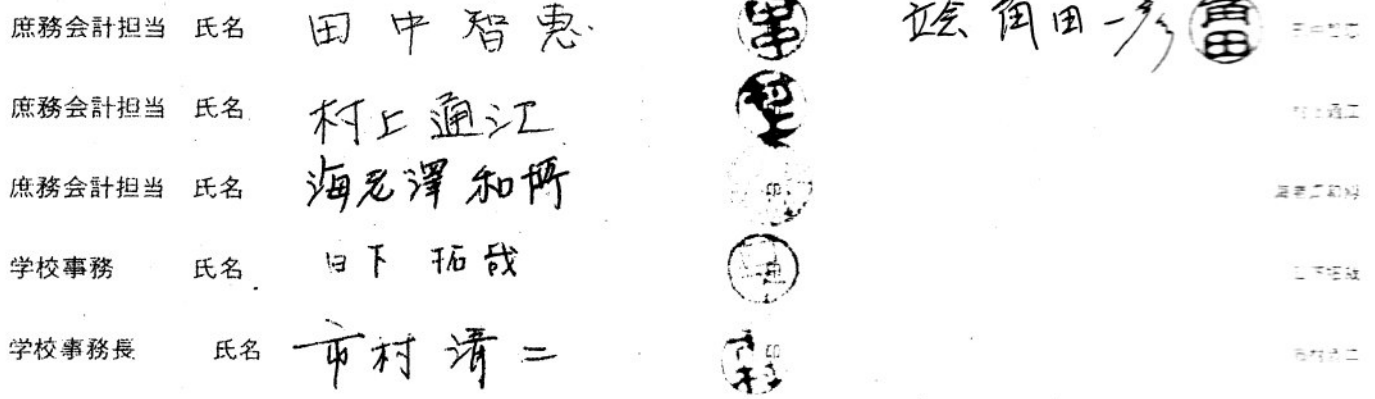 庶務会計担当 氏名 田中智恵 立会 角田一彦 角田 田中智恵
庶務会計担当 氏名 村上通江 村上 村上通江
庶務会計担当 氏名 海老澤和 印
学校事務 氏名 日下 拓哉 日下拓哉
学校事務長 氏名 市村 清二 市村 印 市村清二